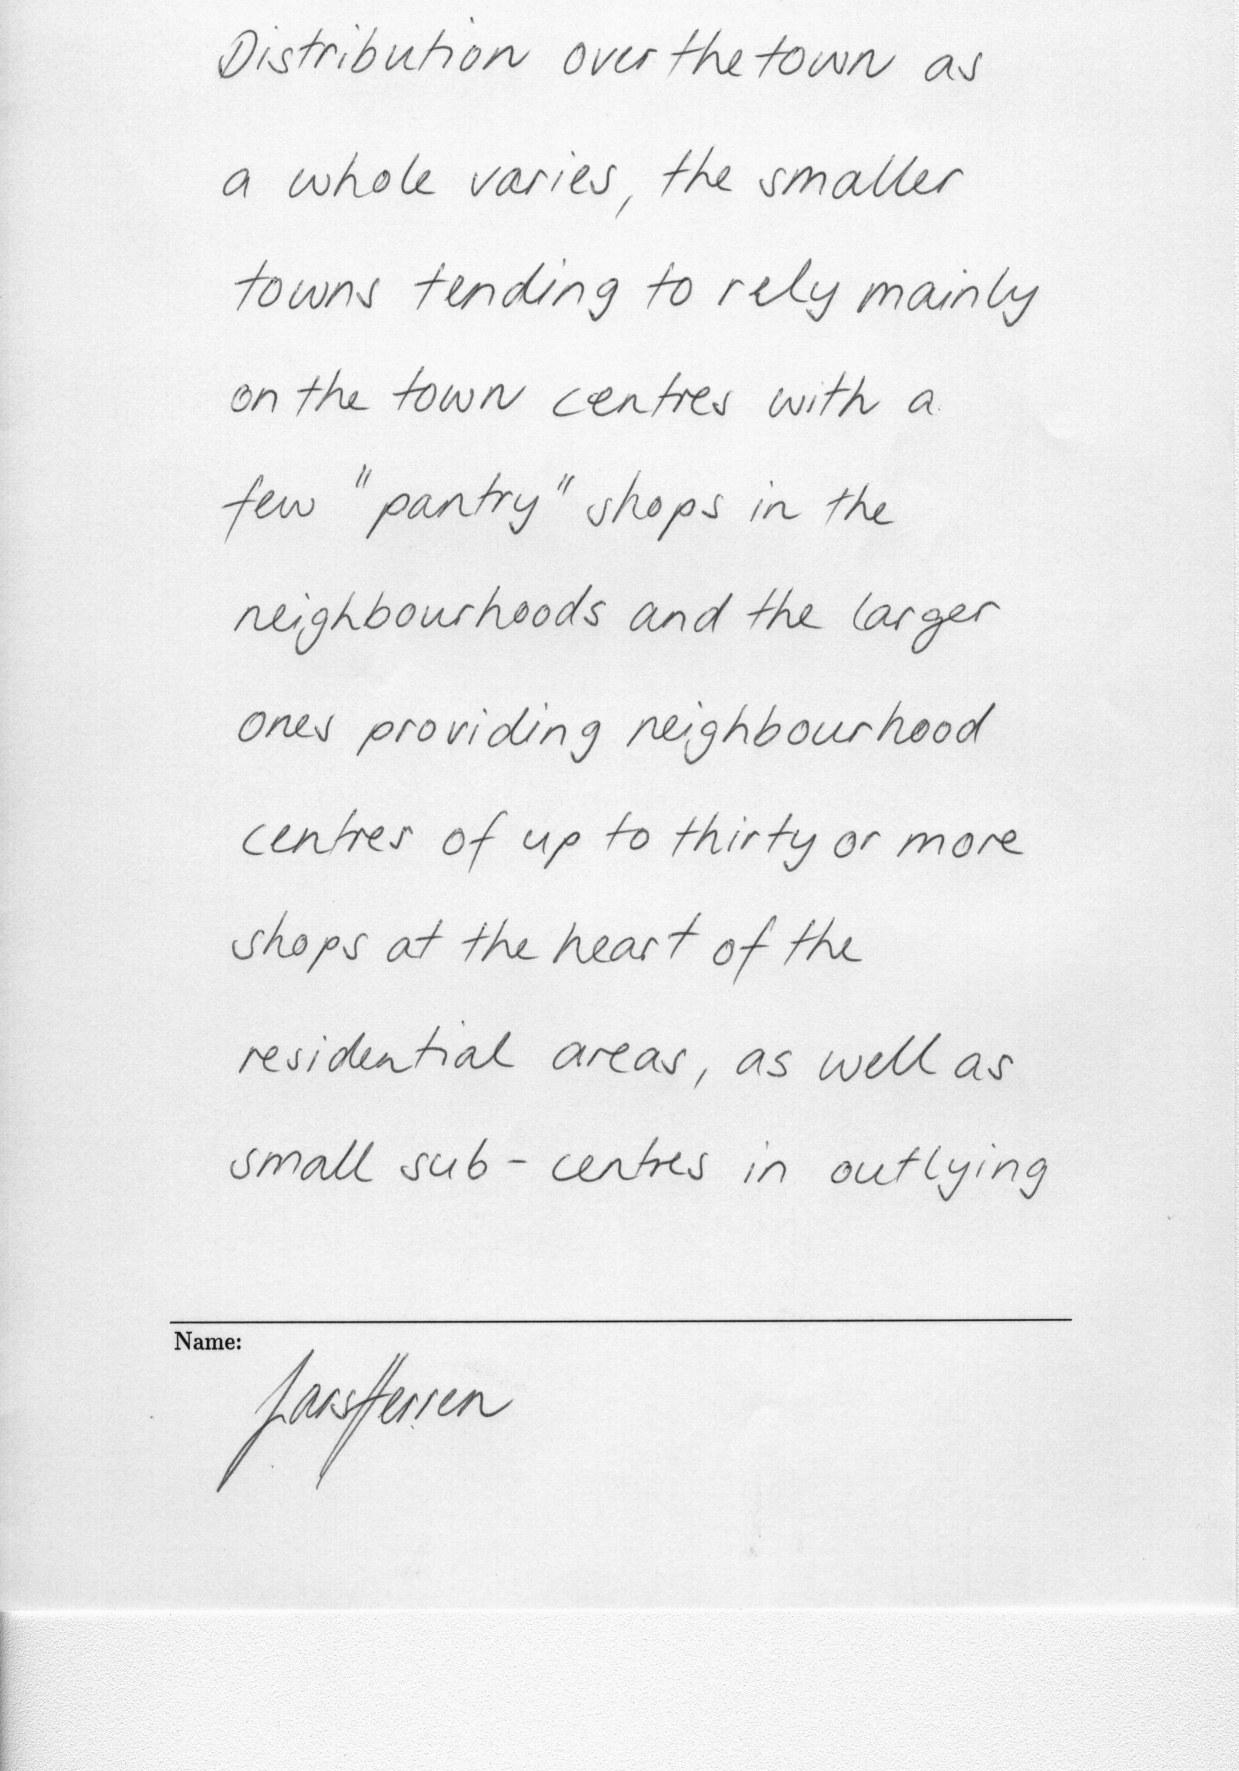 Distribution over the town as
a whole varies, the smaller
towns tending to rely mainly
on the town centres with a
few "pantry" shops in the
neighbourhoods and the larger
ones providing neighbourhood
centres of up to thirty or more
shops at the heart of the
residential areas, as well as
small sub-centres in outlying
Name: